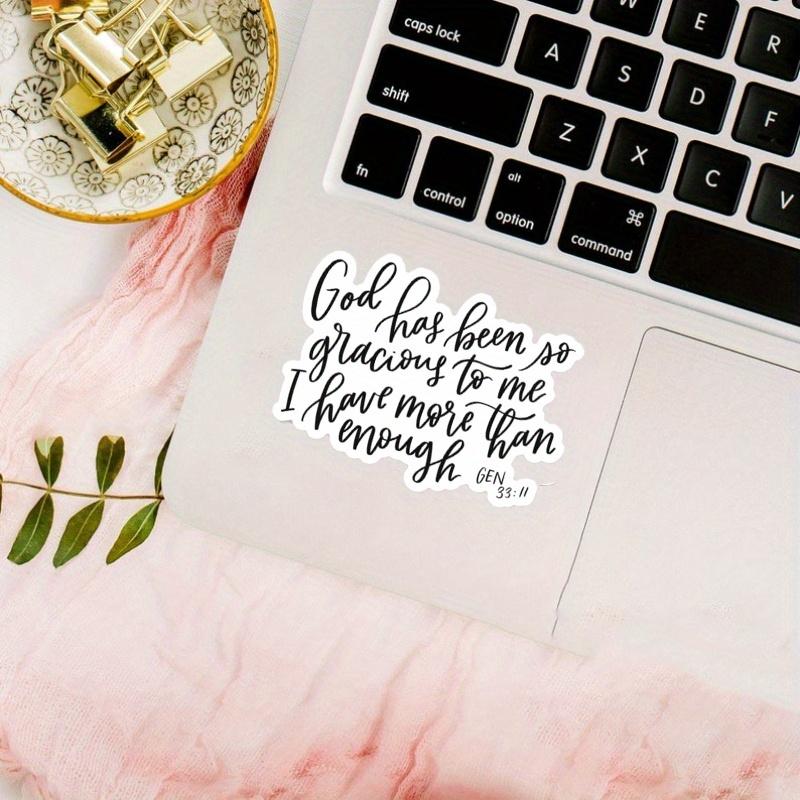 W E R
caps lock A S D F
shift Z X C V
fn control alt option ⌘ command
God has been so
gracious to me
I have more than
enough GEN
33:11